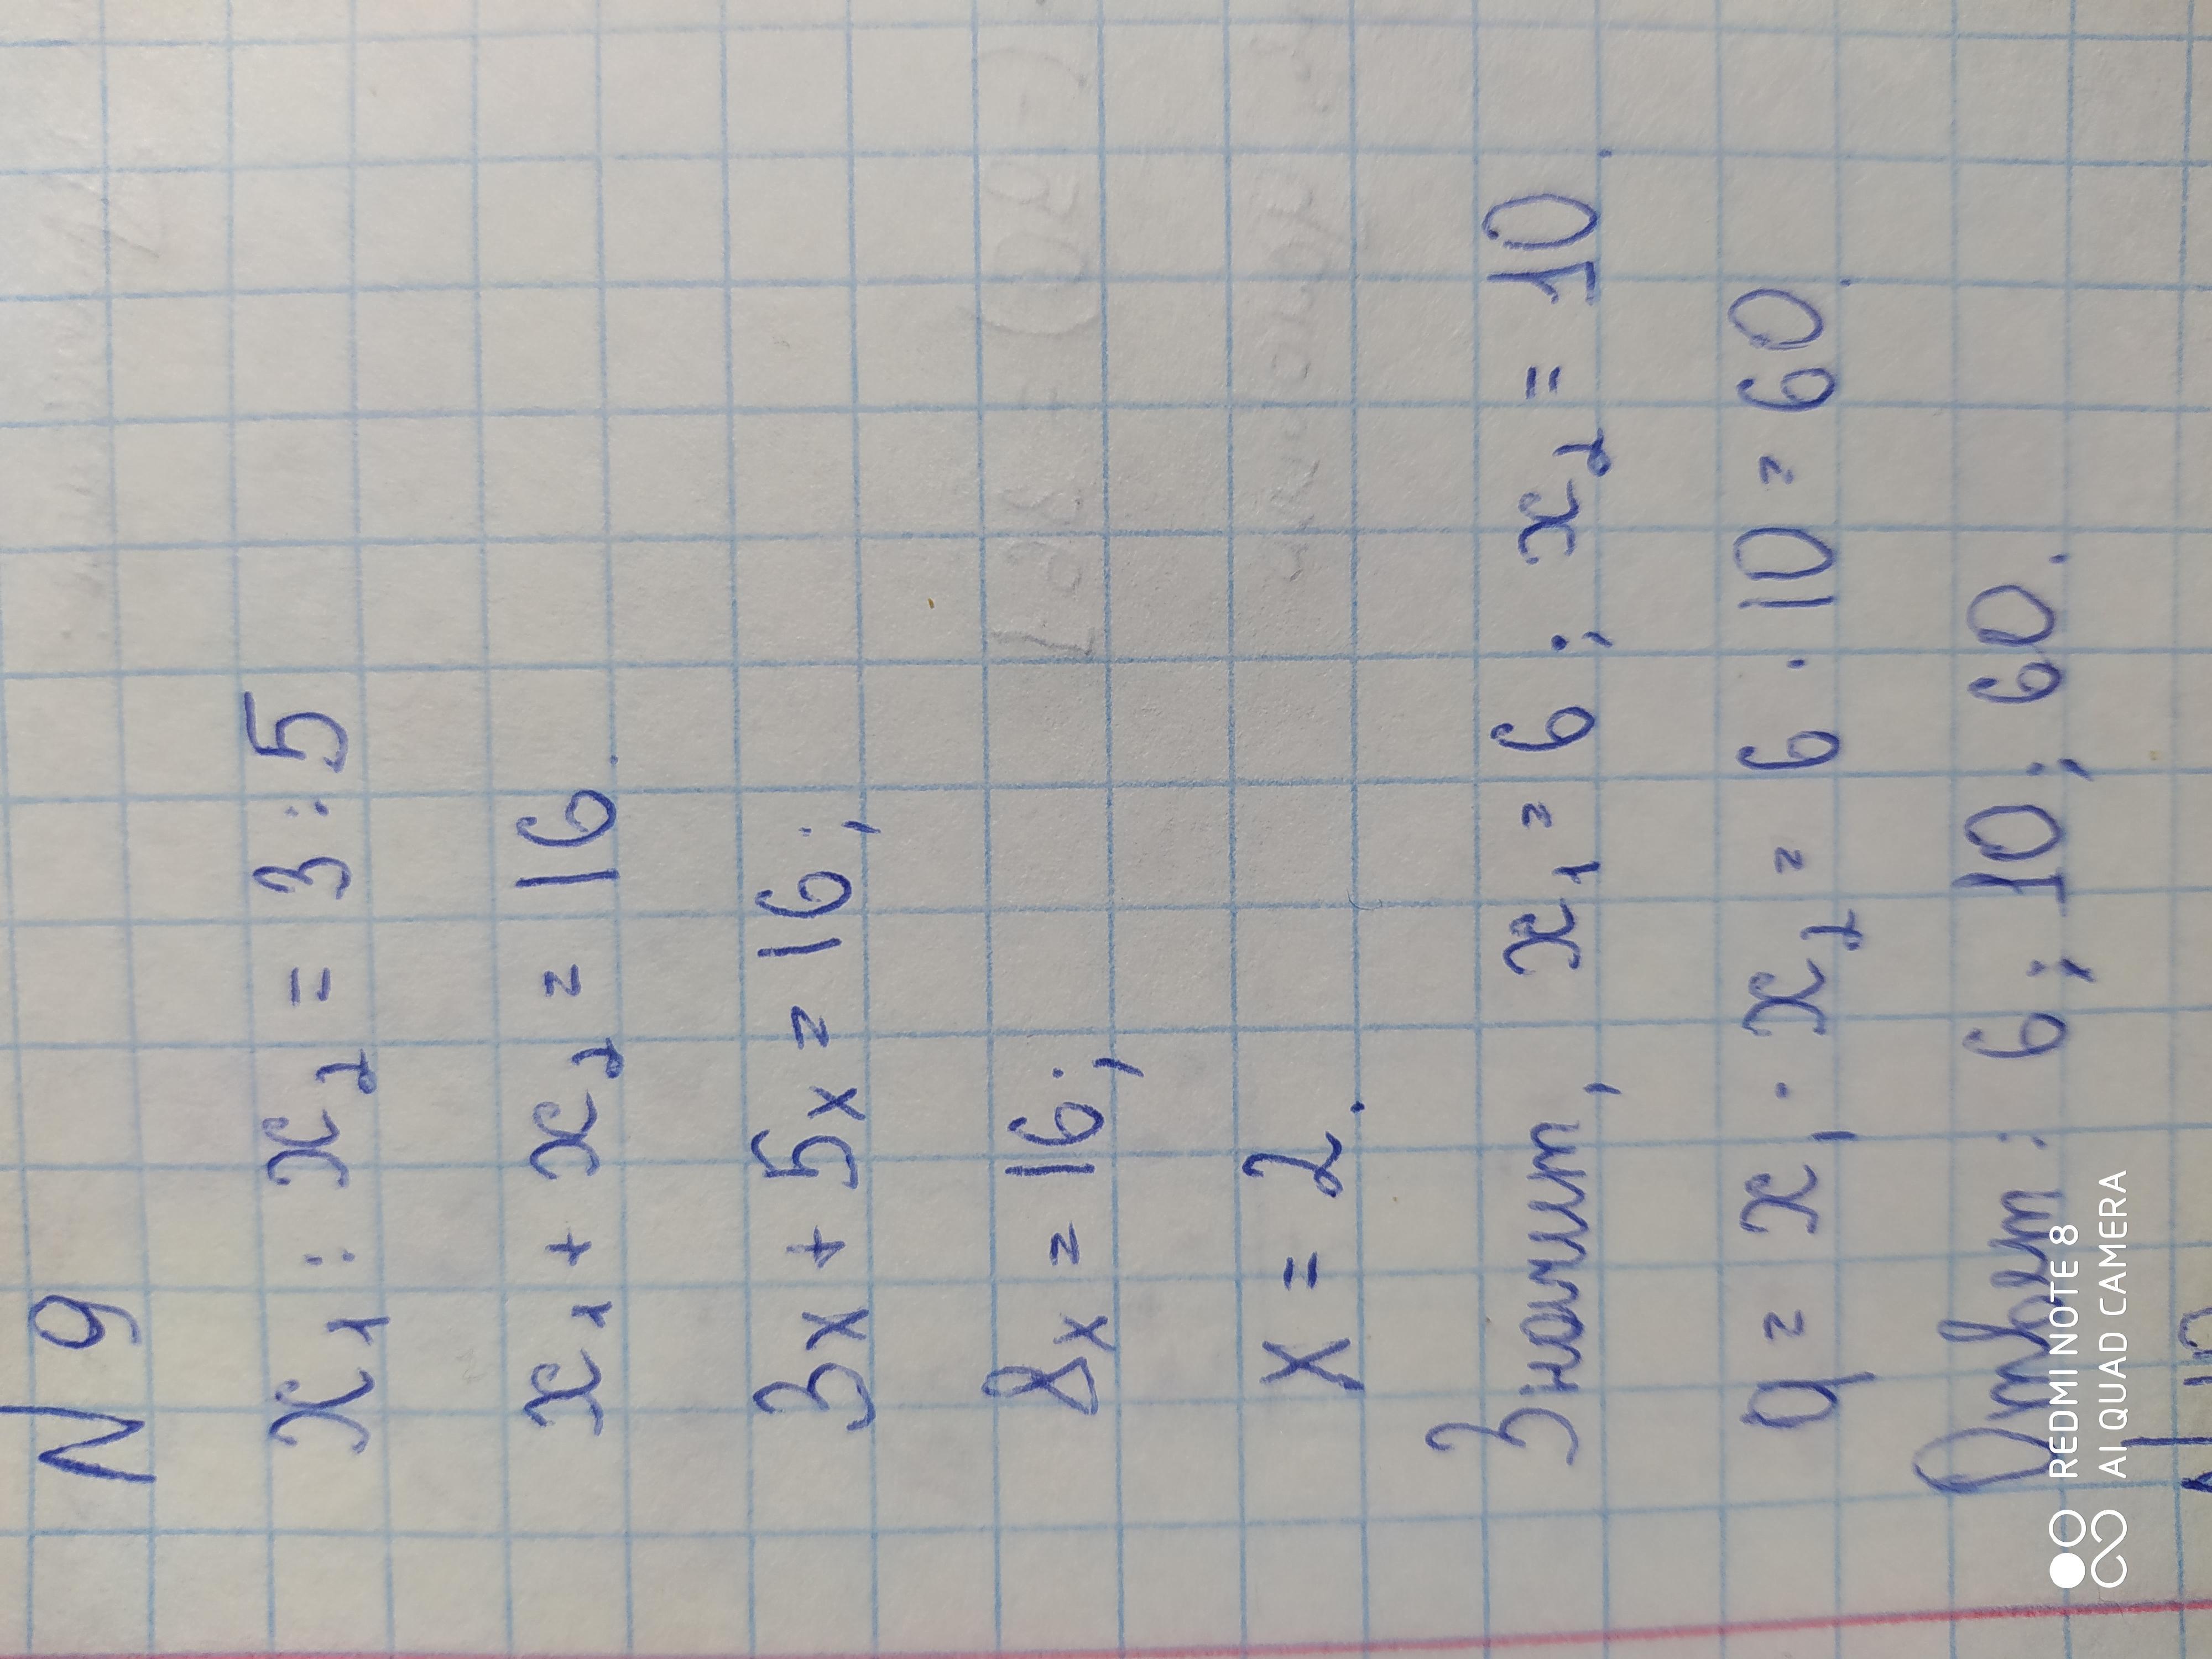 N 9
x₁ : x₂ = 3 : 5
x₁ + x₂ = 16.
3x + 5x = 16;
8x = 16;
x = 2.
Значит, x₁ = 6; x₂ = 10.
q = x₁ · x₂ = 6 · 10 = 60.
Ответ: 6; 10; 60.
REDMI NOTE 8
AI QUAD CAMERA